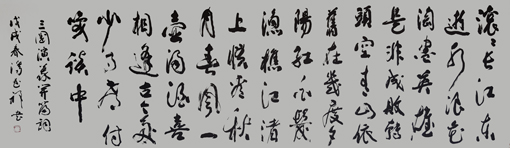 滚々長江東
逝水浪花
淘盡英雄
是非成敗轉
頭空青山依
舊在幾度夕
陽紅白髮
漁樵江渚
上慣看秋
月春風一
壺濁酒喜
相逢古今多
少事都付
笑談中
三國演義開篇詞
戊戌春